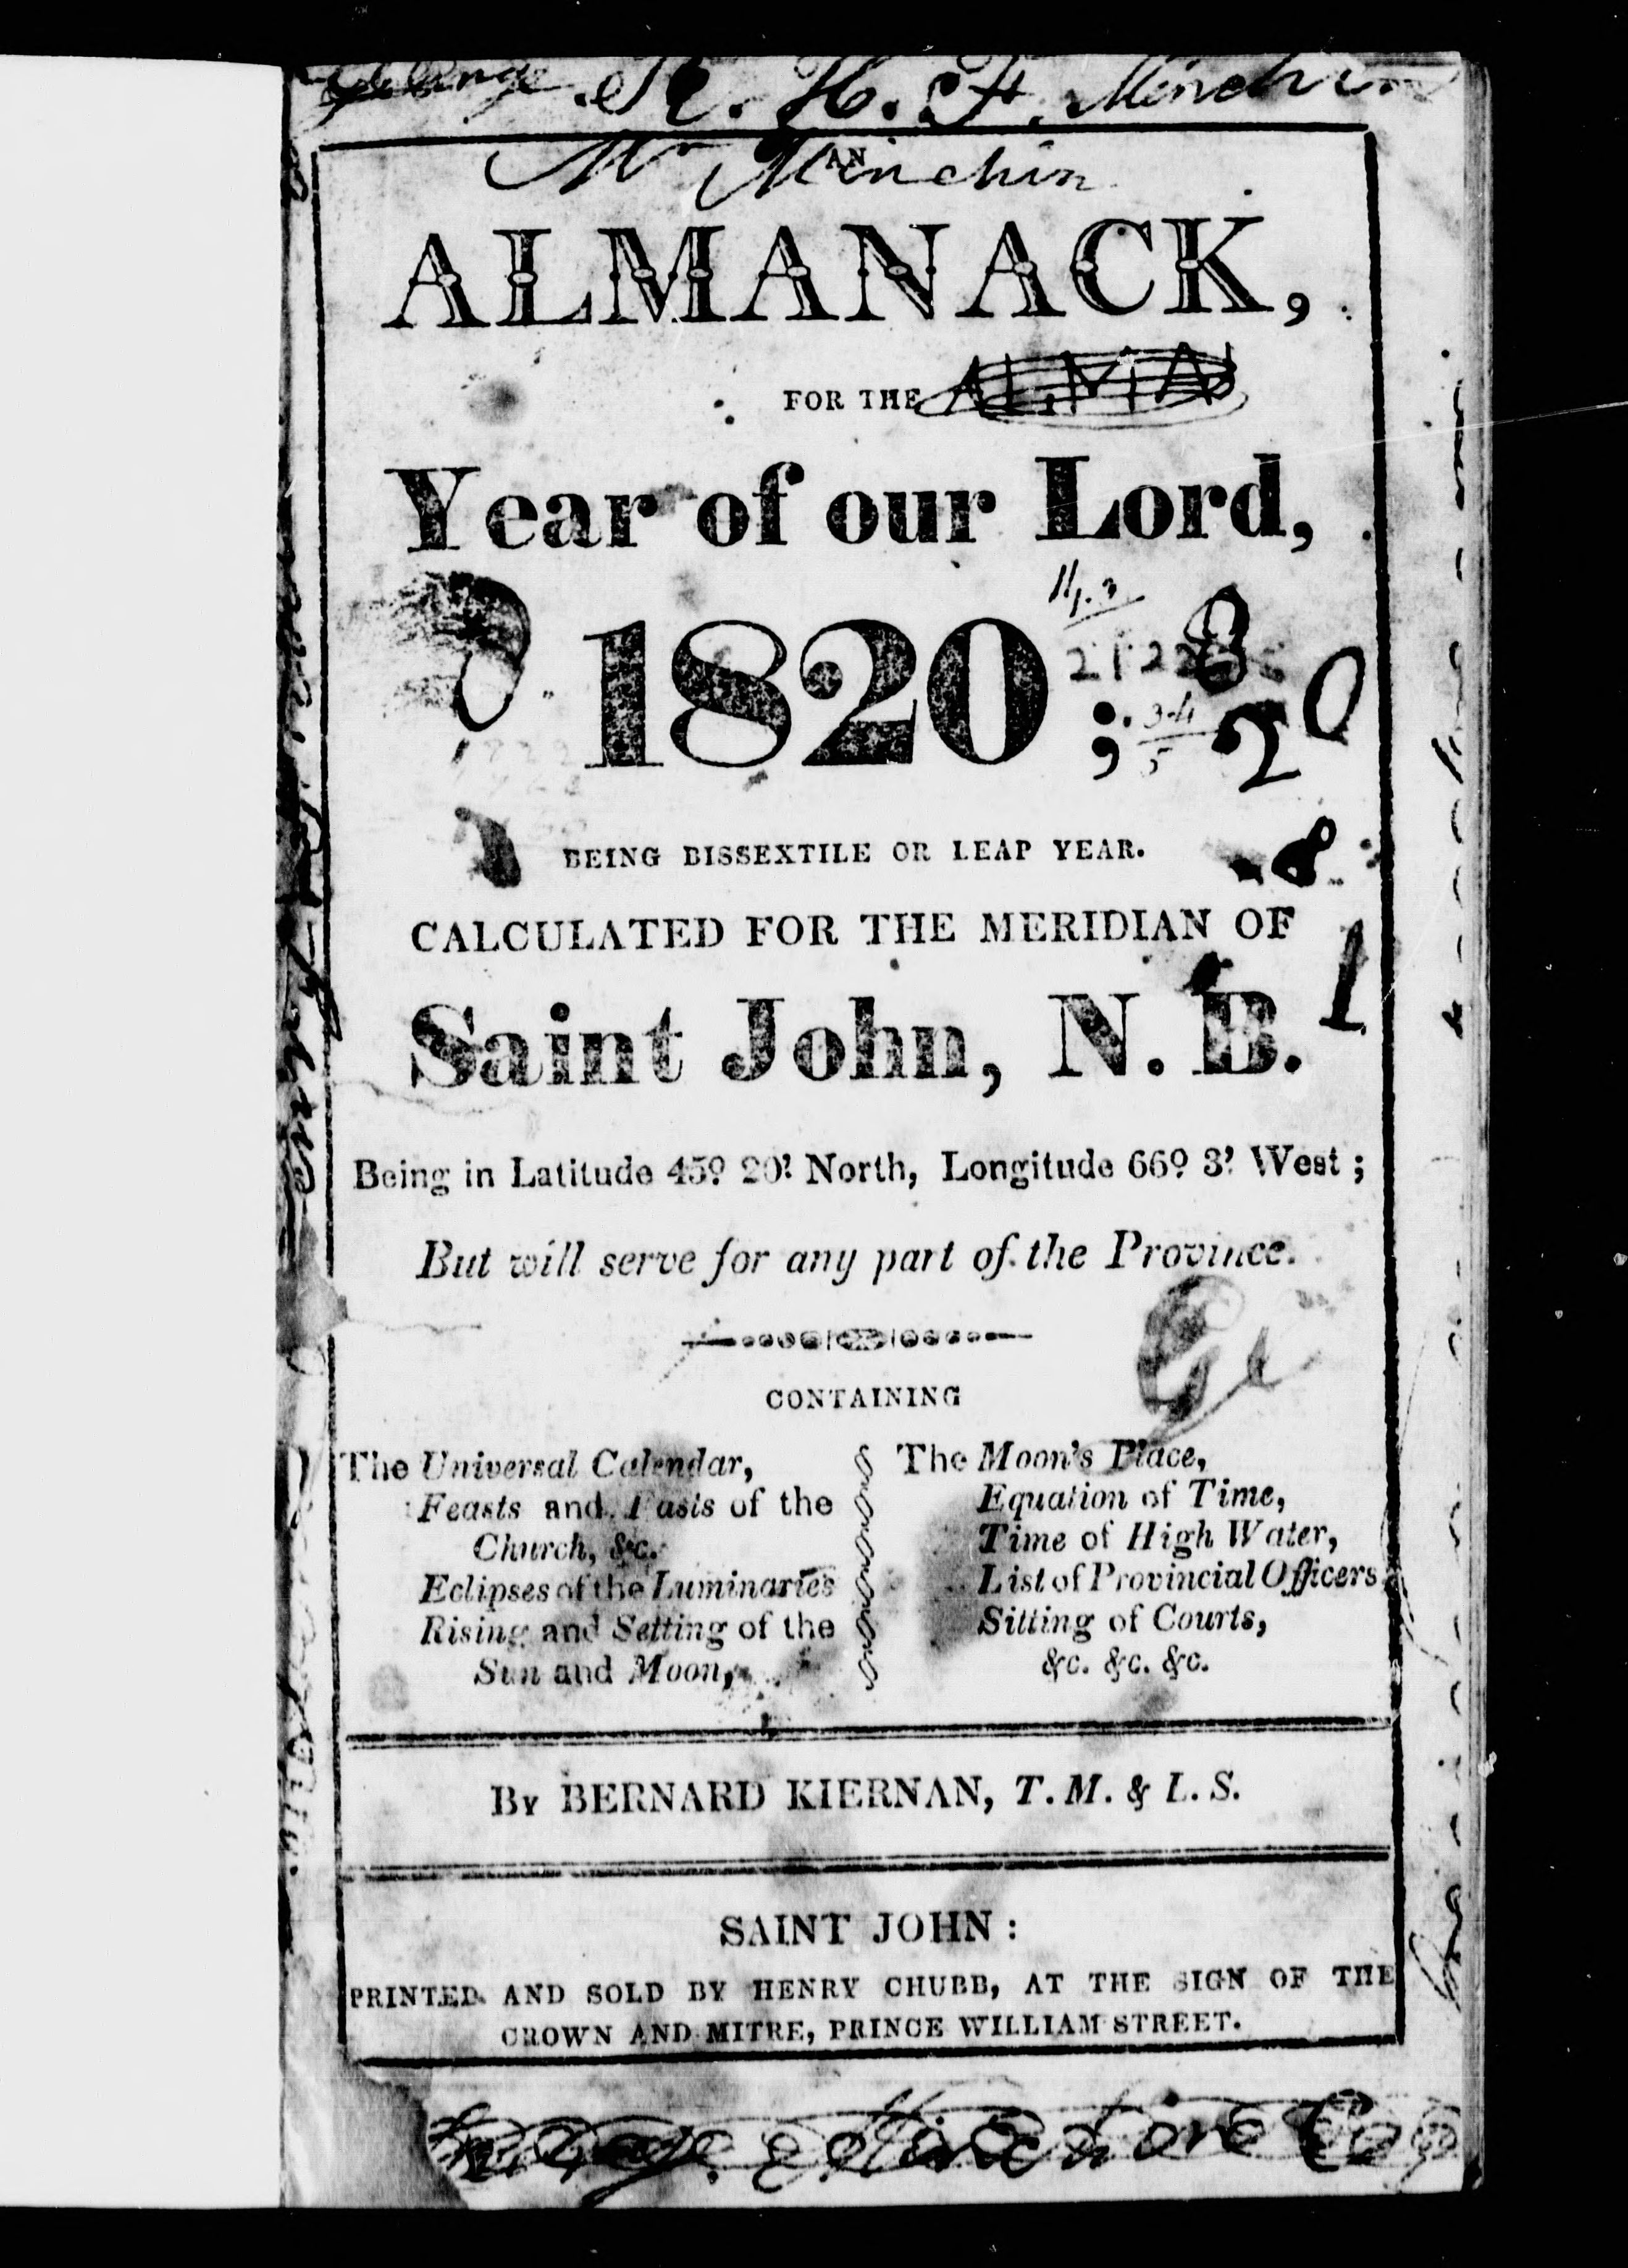 R. H. F. Minchin
AN
Mr Minchin
ALMANACK,
FOR THE ALMA
Year of our Lord,
1820;
8
2 0
BEING BISSEXTILE OR LEAP YEAR.
8
CALCULATED FOR THE MERIDIAN OF
1
Saint John, N. B.
Being in Latitude 45° 20' North, Longitude 66° 3' West;
But will serve for any part of the Province.
Ge
CONTAINING
The Universal Calendar,
Feasts and Fasts of the
Church, &c.
Eclipses of the Luminaries
Rising and Setting of the
Sun and Moon,
The Moon's Place,
Equation of Time,
Time of High Water,
List of Provincial Officers
Sitting of Courts,
&c. &c. &c.
By BERNARD KIERNAN, T. M. & L. S.
SAINT JOHN:
PRINTED AND SOLD BY HENRY CHUBB, AT THE SIGN OF THE
CROWN AND MITRE, PRINCE WILLIAM STREET.